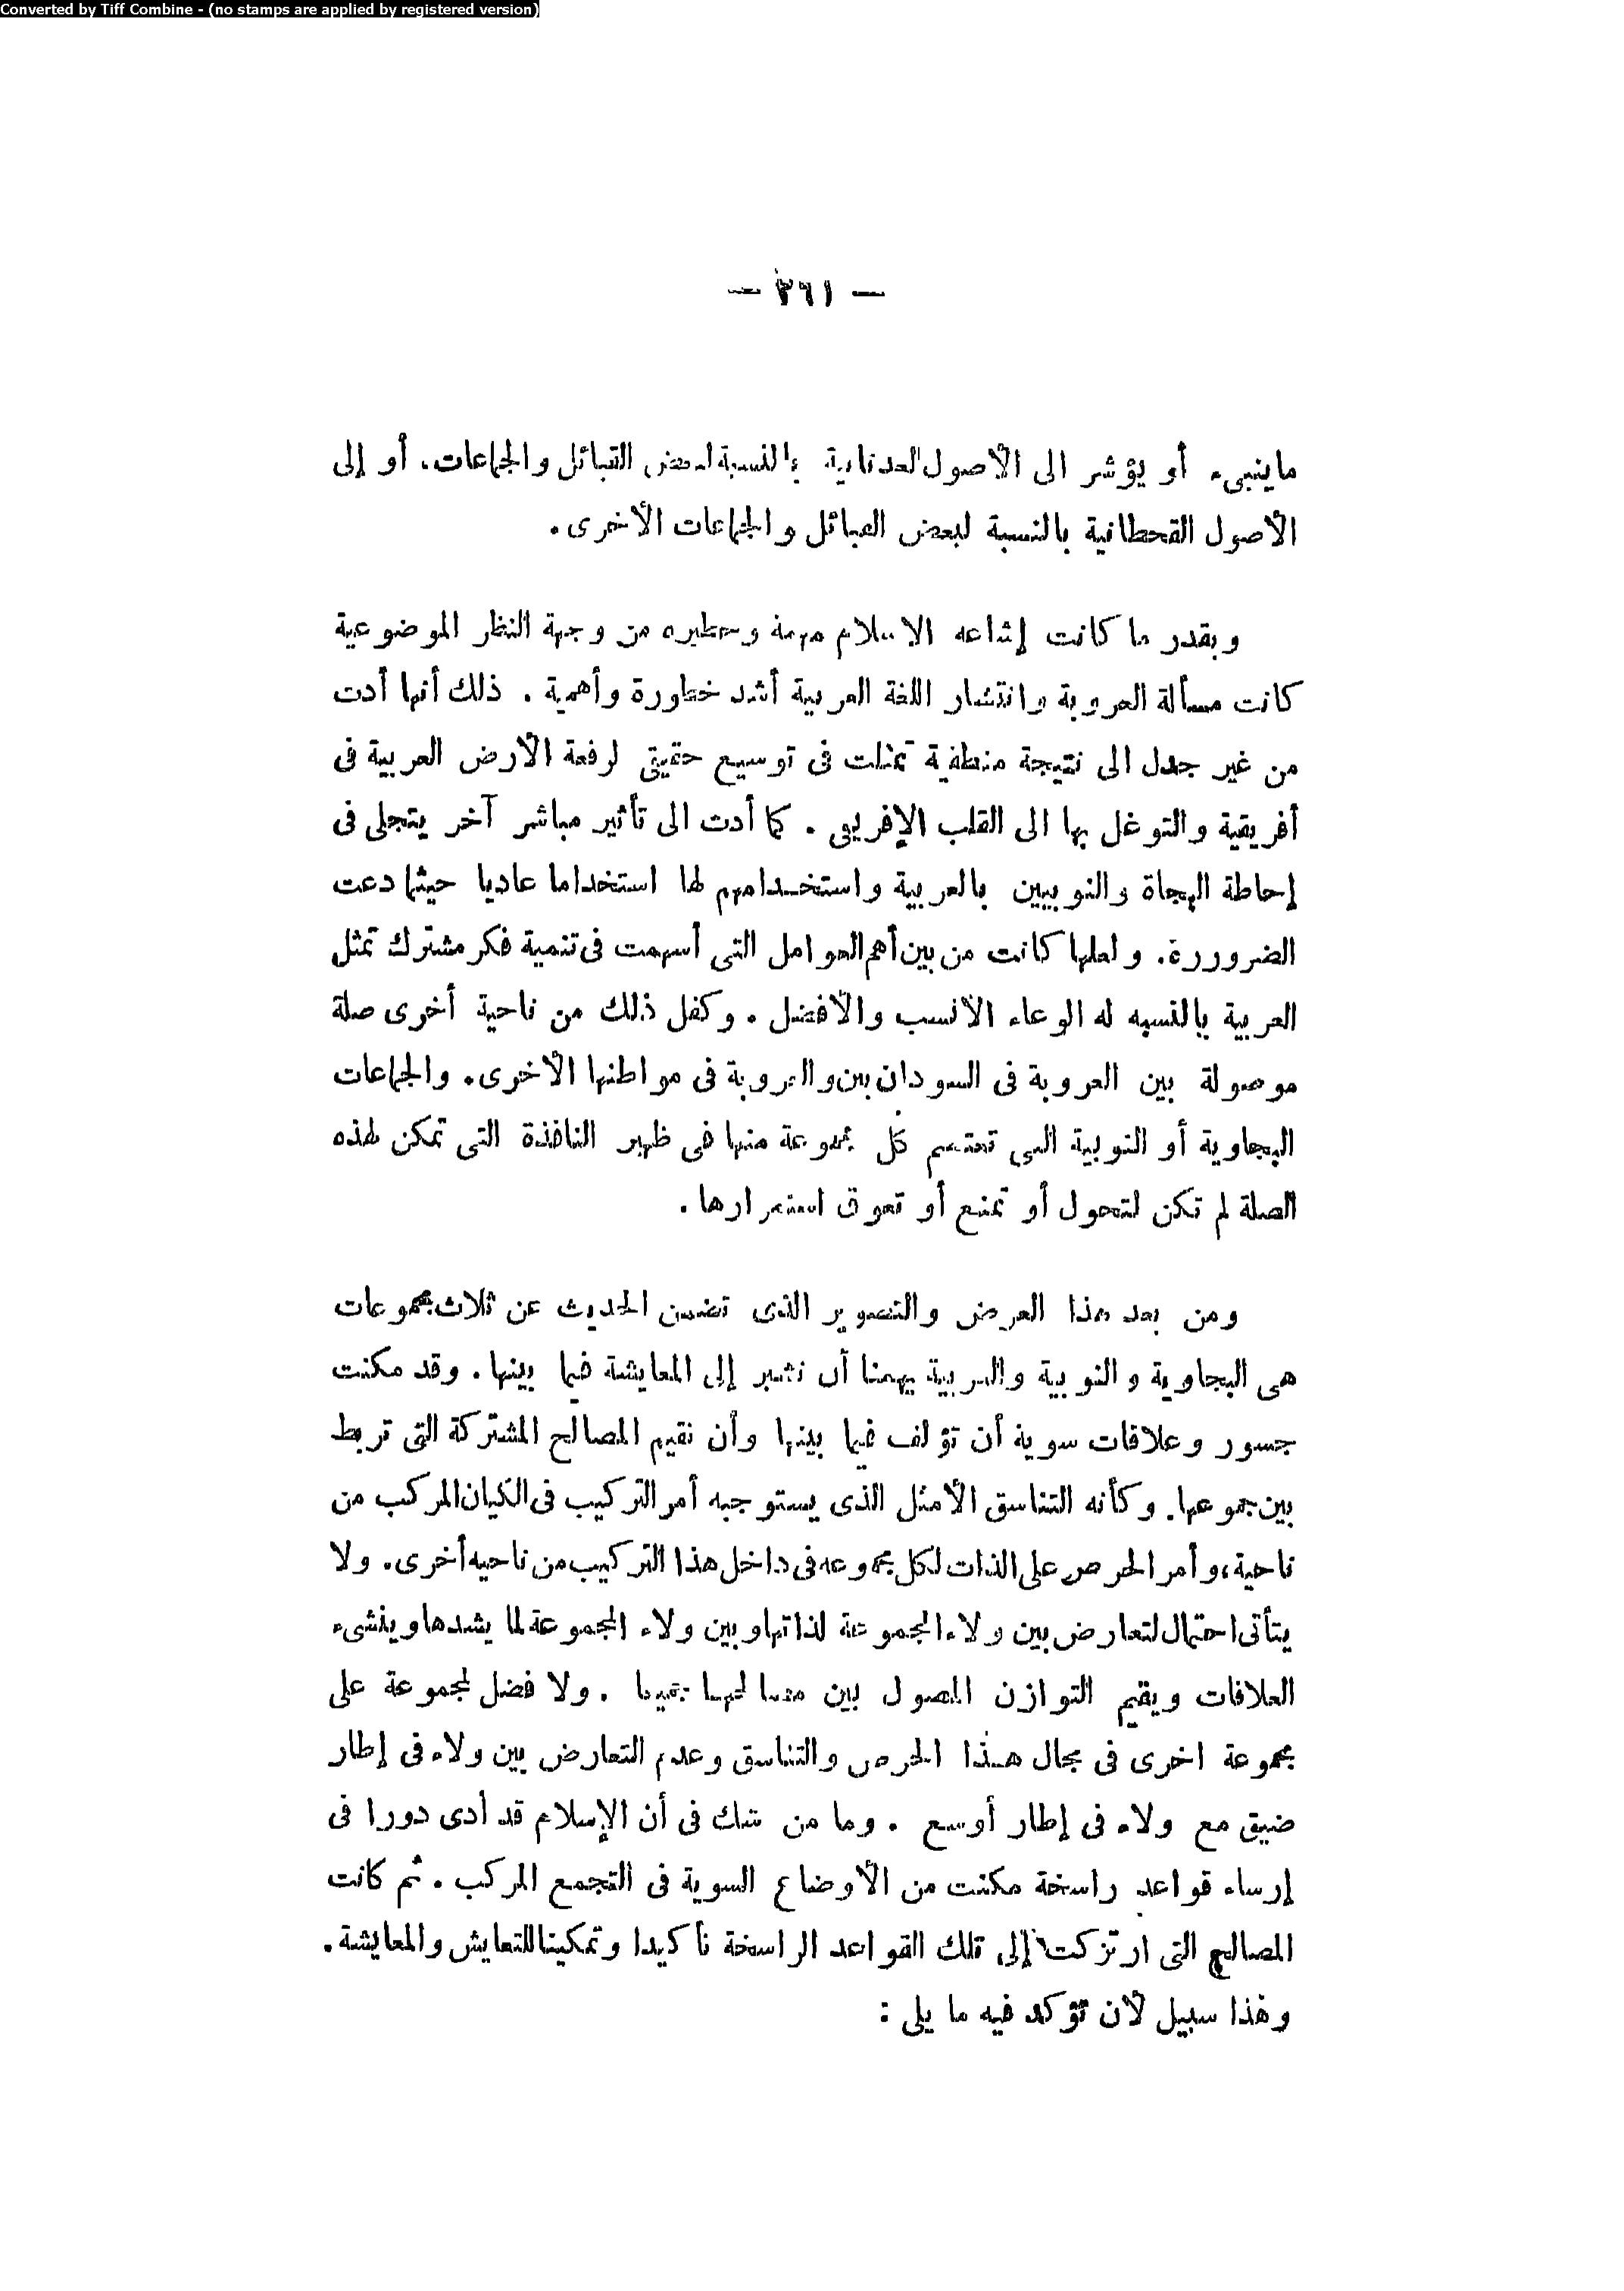 Converted by Tiff Combine - (no stamps are applied by registered version)
— ٣٦١ —
ماينبىء أو يؤشر الى الأصول العدنانية بالنسبة لبعض القبائل والجماعات، أو إلى
الأصول القحطانية بالنسبة لبعض القبائل والجماعات الأخرى.
وبقدر ما كانت إشاعه الاسلام مهمة وخطيره من وجهة النظر الموضوعية
كانت مسألة العروبة وانتشار اللغة العربية أشد خطورة وأهمية . ذلك أنها أدت
من غير جدل الى نتيجة منطقية تمثلت فى توسيع حقيقى لرقعة الأرض العربية فى
أفريقية والتوغل بها الى القلب الإفريقى . كما أدت الى تأثير مباشر آخر يتجلى فى
إحاطة البجاة والنوبيين بالعربية واستخدامهم لها استخداما عاديا حيثما دعت
الضرورة. ولعلها كانت من بين أهم العوامل التى أسهمت فى تنمية فكر مشترك تمثل
العربية بالنسبه له الوعاء الأنسب والأفضل . وكفل ذلك من ناحية أخرى صلة
موصولة بين العروبة فى السودان بين والعروبة فى مواطنها الأخرى. والجماعات
البجاوية أو النوبية التى تعتصم كل مجموعة منها فى ظهير النافذة التى تمكن لهذه
الصلة لم تكن لتحول أو تمنع أو تعوق استمرارها .
ومن بعد هذا العرض والتصوير الذى تضمن الحديث عن ثلاث مجموعات
هى البجاوية والنوبية والعربية يهمنا أن نشير إلى المعايشة فيما بينها . وقد مكنت
جسور وعلاقات سوية أن تؤلف فيما بينها وأن تقيم المصالح المشتركة التى تربط
بين جموعها. وكأنه التناسق الأمثل الذى يستوجبه أمر التركيب فى الكيان المركب من
ناحية، وأمر الحرص على الذات لكل مجموعه فى داخل هذا التركيب من ناحيه أخرى. ولا
يتأتى احتمال لتعارض بين ولاء المجموعة لذاتها وبين ولاء المجموعة لما يشدها وينشىء
العلاقات ويقيم التوازن المصول بين مصالحها جميعا . ولا فضل لمجموعة على
مجموعة اخرى فى مجال هذا الحرص والتناسق وعدم التعارض بين ولاء فى إطار
ضيق مع ولاء فى إطار أوسع . وما من شك فى أن الإسلام قد أدى دورا فى
إرساء قواعد راسخة مكنت من الأوضاع السوية فى التجمع المركب . ثم كانت
المصالح التى ارتزكت إلى تلك القواعد الراسخة تأكيدا وتمكينا للتعايش والمعايشة .
وهذا سبيل لأن تؤكد فيه ما يلى :